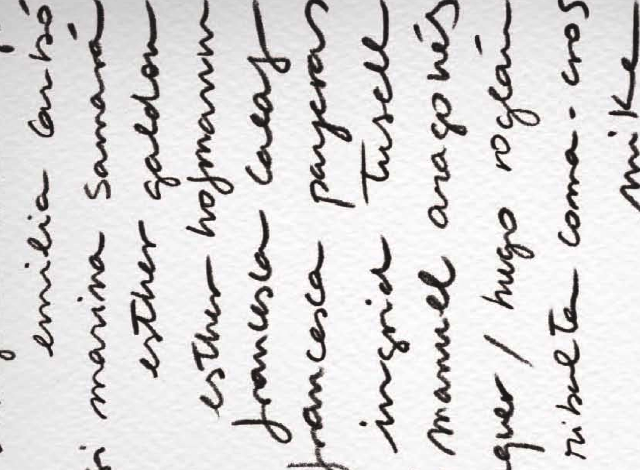 emilia carbó
si marina samará
esther galdon
esther hofmann
francesca casas
francesca payeras
ingrid tusell
manuel aragonés
guer / hugo roglán
ribalta coma-cros
mike